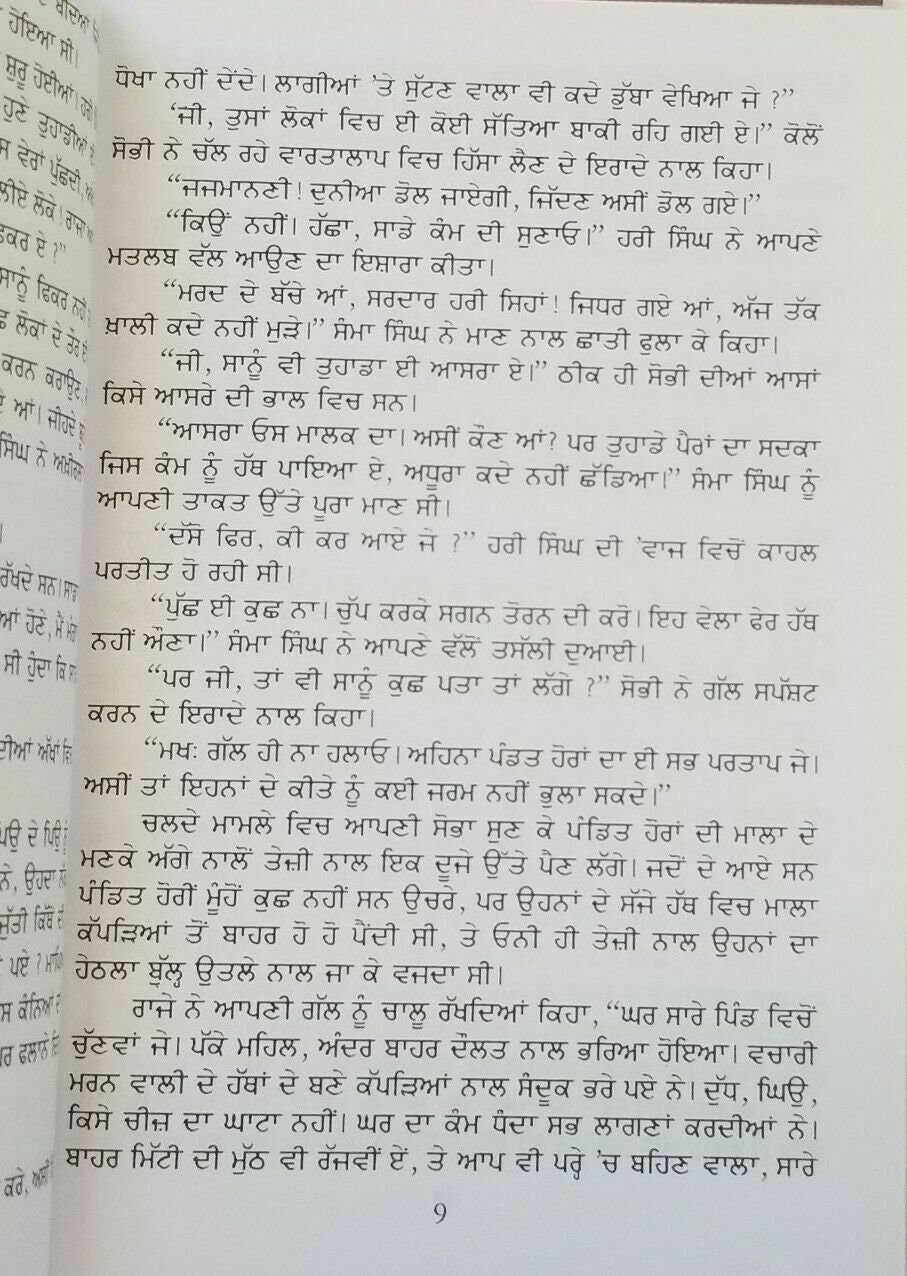 ਧੋਖਾ ਨਹੀਂ ਦੇਂਦੇ। ਲਾਗੀਆਂ ’ਤੇ ਸੁੱਟਣ ਵਾਲਾ ਵੀ ਕਦੇ ਡੁੱਬਾ ਵੇਖਿਆ ਜੇ ?”
‘ਜੀ, ਤੁਸਾਂ ਲੋਕਾਂ ਵਿਚ ਈ ਕੋਈ ਸੱਤਿਆ ਬਾਕੀ ਰਹਿ ਗਈ ਏ।” ਕੋਲੋਂ
ਸੋਭੀ ਨੇ ਚੱਲ ਰਹੇ ਵਾਰਤਾਲਾਪ ਵਿਚ ਹਿੱਸਾ ਲੈਣ ਦੇ ਇਰਾਦੇ ਨਾਲ ਕਿਹਾ।
“ਜਜਮਾਨਣੀ! ਦੁਨੀਆ ਡੋਲ ਜਾਏਗੀ, ਜਿੱਦਣ ਅਸੀਂ ਡੋਲ ਗਏ।”
“ਕਿਉਂ ਨਹੀਂ। ਹੱਛਾ, ਸਾਡੇ ਕੰਮ ਦੀ ਸੁਣਾਓ।” ਹਰੀ ਸਿੰਘ ਨੇ ਆਪਣੇ
ਮਤਲਬ ਵੱਲ ਆਉਣ ਦਾ ਇਸ਼ਾਰਾ ਕੀਤਾ।
“ਮਰਦ ਦੇ ਬੱਚੇ ਆਂ, ਸਰਦਾਰ ਹਰੀ ਸਿਹਾਂ! ਜਿਧਰ ਗਏ ਆਂ, ਅੱਜ ਤੱਕ
ਖ਼ਾਲੀ ਕਦੇ ਨਹੀਂ ਮੁੜੇ।” ਸੰਮਾ ਸਿੰਘ ਨੇ ਮਾਣ ਨਾਲ ਛਾਤੀ ਫੁਲਾ ਕੇ ਕਿਹਾ।
“ਜੀ, ਸਾਨੂੰ ਵੀ ਤੁਹਾਡਾ ਈ ਆਸਰਾ ਏ।” ਠੀਕ ਹੀ ਸੋਭੀ ਦੀਆਂ ਆਸਾਂ
ਕਿਸੇ ਆਸਰੇ ਦੀ ਭਾਲ ਵਿਚ ਸਨ।
“ਆਸਰਾ ਓਸ ਮਾਲਕ ਦਾ। ਅਸੀਂ ਕੌਣ ਆਂ? ਪਰ ਤੁਹਾਡੇ ਪੈਰਾਂ ਦਾ ਸਦਕਾ
ਜਿਸ ਕੰਮ ਨੂੰ ਹੱਥ ਪਾਇਆ ਏ, ਅਧੂਰਾ ਕਦੇ ਨਹੀਂ ਛੱਡਿਆ।” ਸੰਮਾ ਸਿੰਘ ਨੂੰ
ਆਪਣੀ ਤਾਕਤ ਉੱਤੇ ਪੂਰਾ ਮਾਣ ਸੀ।
“ਦੱਸੋ ਫਿਰ, ਕੀ ਕਰ ਆਏ ਜੇ ?” ਹਰੀ ਸਿੰਘ ਦੀ ’ਵਾਜ ਵਿਚੋਂ ਕਾਹਲ
ਪਰਤੀਤ ਹੋ ਰਹੀ ਸੀ।
“ਪੁੱਛ ਈ ਕੁਛ ਨਾ। ਚੁੱਪ ਕਰਕੇ ਸਗਨ ਤੋਰਨ ਦੀ ਕਰੋ। ਇਹ ਵੇਲਾ ਫੇਰ ਹੱਥ
ਨਹੀਂ ਔਣਾ।” ਸੰਮਾ ਸਿੰਘ ਨੇ ਆਪਣੇ ਵੱਲੋਂ ਤਸੱਲੀ ਦੁਆਈ।
“ਪਰ ਜੀ, ਤਾਂ ਵੀ ਸਾਨੂੰ ਕੁਛ ਪਤਾ ਤਾਂ ਲੱਗੇ ?” ਸੋਭੀ ਨੇ ਗੱਲ ਸਪੱਸ਼ਟ
ਕਰਨ ਦੇ ਇਰਾਦੇ ਨਾਲ ਕਿਹਾ।
“ਮਖ਼ਃ ਗੱਲ ਹੀ ਨਾ ਹਲਾਓ। ਅਹਿਨਾ ਪੰਡਤ ਹੋਰਾਂ ਦਾ ਈ ਸਭ ਪਰਤਾਪ ਜੇ।
ਅਸੀਂ ਤਾਂ ਇਹਨਾਂ ਦੇ ਕੀਤੇ ਨੂੰ ਕਈ ਜਰਮ ਨਹੀਂ ਭੁਲਾ ਸਕਦੇ।”
ਚਲਦੇ ਮਾਮਲੇ ਵਿਚ ਆਪਣੀ ਸੋਭਾ ਸੁਣ ਕੇ ਪੰਡਿਤ ਹੋਰਾਂ ਦੀ ਮਾਲਾ ਦੇ
ਮਣਕੇ ਅੱਗੇ ਨਾਲੋਂ ਤੇਜ਼ੀ ਨਾਲ ਇਕ ਦੂਜੇ ਉੱਤੇ ਪੈਣ ਲੱਗੇ। ਜਦੋਂ ਦੇ ਆਏ ਸਨ
ਪੰਡਿਤ ਹੋਰੀਂ ਮੂੰਹੋਂ ਕੁਛ ਨਹੀਂ ਸਨ ਉਚਰੇ, ਪਰ ਉਹਨਾਂ ਦੇ ਸੱਜੇ ਹੱਥ ਵਿਚ ਮਾਲਾ
ਕੱਪੜਿਆਂ ਤੋਂ ਬਾਹਰ ਹੋ ਹੋ ਪੈਂਦੀ ਸੀ, ਤੇ ਓਨੀ ਹੀ ਤੇਜ਼ੀ ਨਾਲ ਉਹਨਾਂ ਦਾ
ਹੇਠਲਾ ਬੁੱਲ੍ਹ ਉਤਲੇ ਨਾਲ ਜਾ ਕੇ ਵਜਦਾ ਸੀ।
ਰਾਜੇ ਨੇ ਆਪਣੀ ਗੱਲ ਨੂੰ ਚਾਲੂ ਰੱਖਦਿਆਂ ਕਿਹਾ, “ਘਰ ਸਾਰੇ ਪਿੰਡ ਵਿਚੋਂ
ਚੁੱਣਵਾਂ ਜੇ। ਪੱਕੇ ਮਹਿਲ, ਅੰਦਰ ਬਾਹਰ ਦੌਲਤ ਨਾਲ ਭਰਿਆ ਹੋਇਆ। ਵਚਾਰੀ
ਮਰਨ ਵਾਲੀ ਦੇ ਹੱਥਾਂ ਦੇ ਬਣੇ ਕੱਪੜਿਆਂ ਨਾਲ ਸੰਦੂਕ ਭਰੇ ਪਏ ਨੇ। ਦੁੱਧ, ਘਿਉ,
ਕਿਸੇ ਚੀਜ਼ ਦਾ ਘਾਟਾ ਨਹੀਂ। ਘਰ ਦਾ ਕੰਮ ਧੰਦਾ ਸਭ ਲਾਗਣਾਂ ਕਰਦੀਆਂ ਨੇ।
ਬਾਹਰ ਮਿੱਟੀ ਦੀ ਮੁੱਠ ਵੀ ਰੱਜਵੀਂ ਏਂ, ਤੇ ਆਪ ਵੀ ਪਰ੍ਹੇ ’ਚ ਬਹਿਣ ਵਾਲਾ, ਸਾਰੇ
9